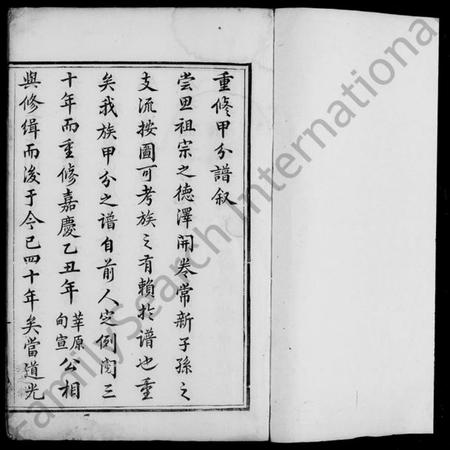 重修甲分譜叙
嘗思祖宗之德澤開卷常新子孫之
支流按圖可考族之有賴於譜也重
矣我族甲分之谱自前人定例閲三
十年而重修嘉慶乙丑年莘原旬宣公相
與修緝而後于今已四十年矣當道光
FamilySearch International